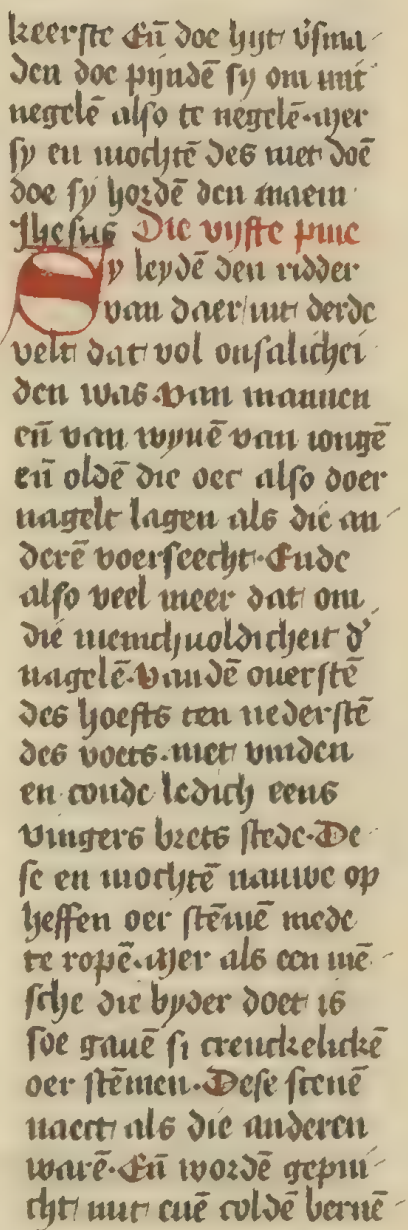 keerste En̄ doe hijt v̓sma
den doe pijndē sy om mit
negelē also te negelē. Mer
sy en mochtē des niet doē
doe sy hordē den naem
Jhesus Die vijfte pine
Sy leydē den ridder
van daer int derde
velt dat vol onsalichei
den was. Van mannen
en̄ van wyuē van iongē
en̄ oldē die oec also doer
nagelt lagen als die an
derē voerseecht. Ende
also veel meer dat om
die menichuoldicheit d̓
nagelē. Vandē ouerstē
des hoefts ten nederstē
des voets. niet vinden
en conde ledich eens
vingers brets stede. De
se en mochtē nauwe op
heffen oer stēmē mede
te ropē. Mer als een mē
sche die byder doet is
soe gauē si crenckelickē
oer stēmen. Dese scenē
naect als die anderen
warē. En̄ wordē gepini
cht mit enē coldē bernē